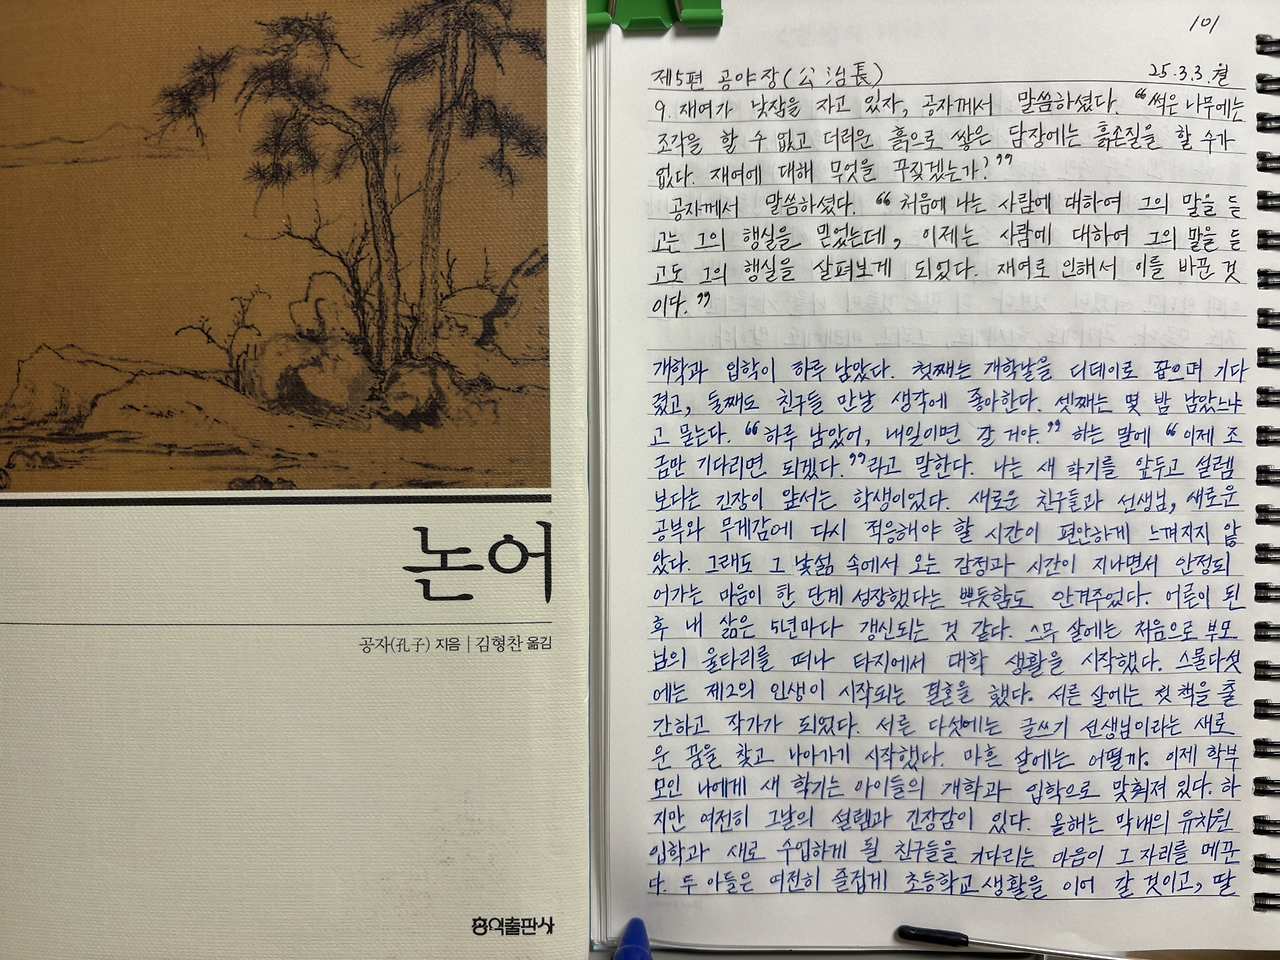 논어
공자(孔子) 지음 | 김형찬 옮김
홍익출판사
101
제5편 공야장(公冶長) 25.3.3.월
9. 재여가 낮잠을 자고 있자, 공자께서 말씀하셨다. "썩은 나무에는
조각을 할 수 없고 더러운 흙으로 쌓은 담장에는 흙손질을 할 수가
없다. 재여에 대해 무엇을 꾸짖겠는가?"
공자께서 말씀하셨다. "처음에 나는 사람에 대하여 그의 말을 듣
고는 그의 행실을 믿었는데, 이제는 사람에 대하여 그의 말을 듣
고도 그의 행실을 살펴보게 되었다. 재여로 인해서 이를 바꾼 것
이다."
개학과 입학이 하루 남았다. 첫째는 개학날을 디데이로 꼽으며 기다
렸고, 둘째도 친구들 만날 생각에 좋아한다. 셋째는 몇 밤 남았느냐
고 묻는다. "하루 남았어, 내일이면 갈 거야." 하는 말에 "이제 조
금만 기다리면 되겠다."라고 말한다. 나는 새 학기를 앞두고 설렘
보다는 긴장이 앞서는 학생이었다. 새로운 친구들과 선생님, 새로운
공부와 무게감에 다시 적응해야 할 시간이 편안하게 느껴지지 않
았다. 그래도 그 낯섦 속에서 오는 감정과 시간이 지나면서 안정되
어가는 마음이 한 단계 성장했다는 뿌듯함도 안겨주었다. 어른이 된
후 내 삶은 5년마다 갱신되는 것 같다. 스무 살에는 처음으로 부모
님의 울타리를 떠나 타지에서 대학 생활을 시작했다. 스물다섯
에는 제2의 인생이 시작되는 결혼을 했다. 서른 살에는 첫 책을 출
간하고 작가가 되었다. 서른 다섯에는 글쓰기 선생님이라는 새로
운 꿈을 찾고 나아가기 시작했다. 마흔 살에는 어떨까. 이제 학부
모인 나에게 새 학기는 아이들의 개학과 입학으로 맞춰져 있다. 하
지만 여전히 그날의 설렘과 긴장감이 있다. 올해는 막내의 유치원
입학과 새로 수업하게 될 친구들을 기다리는 마음이 그 자리를 메꾼
다. 두 아들은 여전히 즐겁게 초등학교 생활을 이어 갈 것이고, 딸